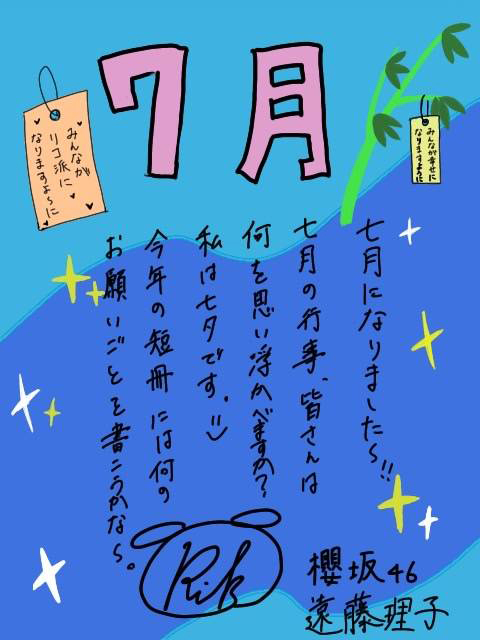 7月
みんなが
リコ派に
なりますよ〜に
みんなが幸せに
なりますように
七月になりました〜!!
七月の行事、皆さんは
何を思い浮かべますか?
私は七夕です。
今年の短冊には何の
お願いごとを書こうかな〜。
Rik
櫻坂46
遠藤理子